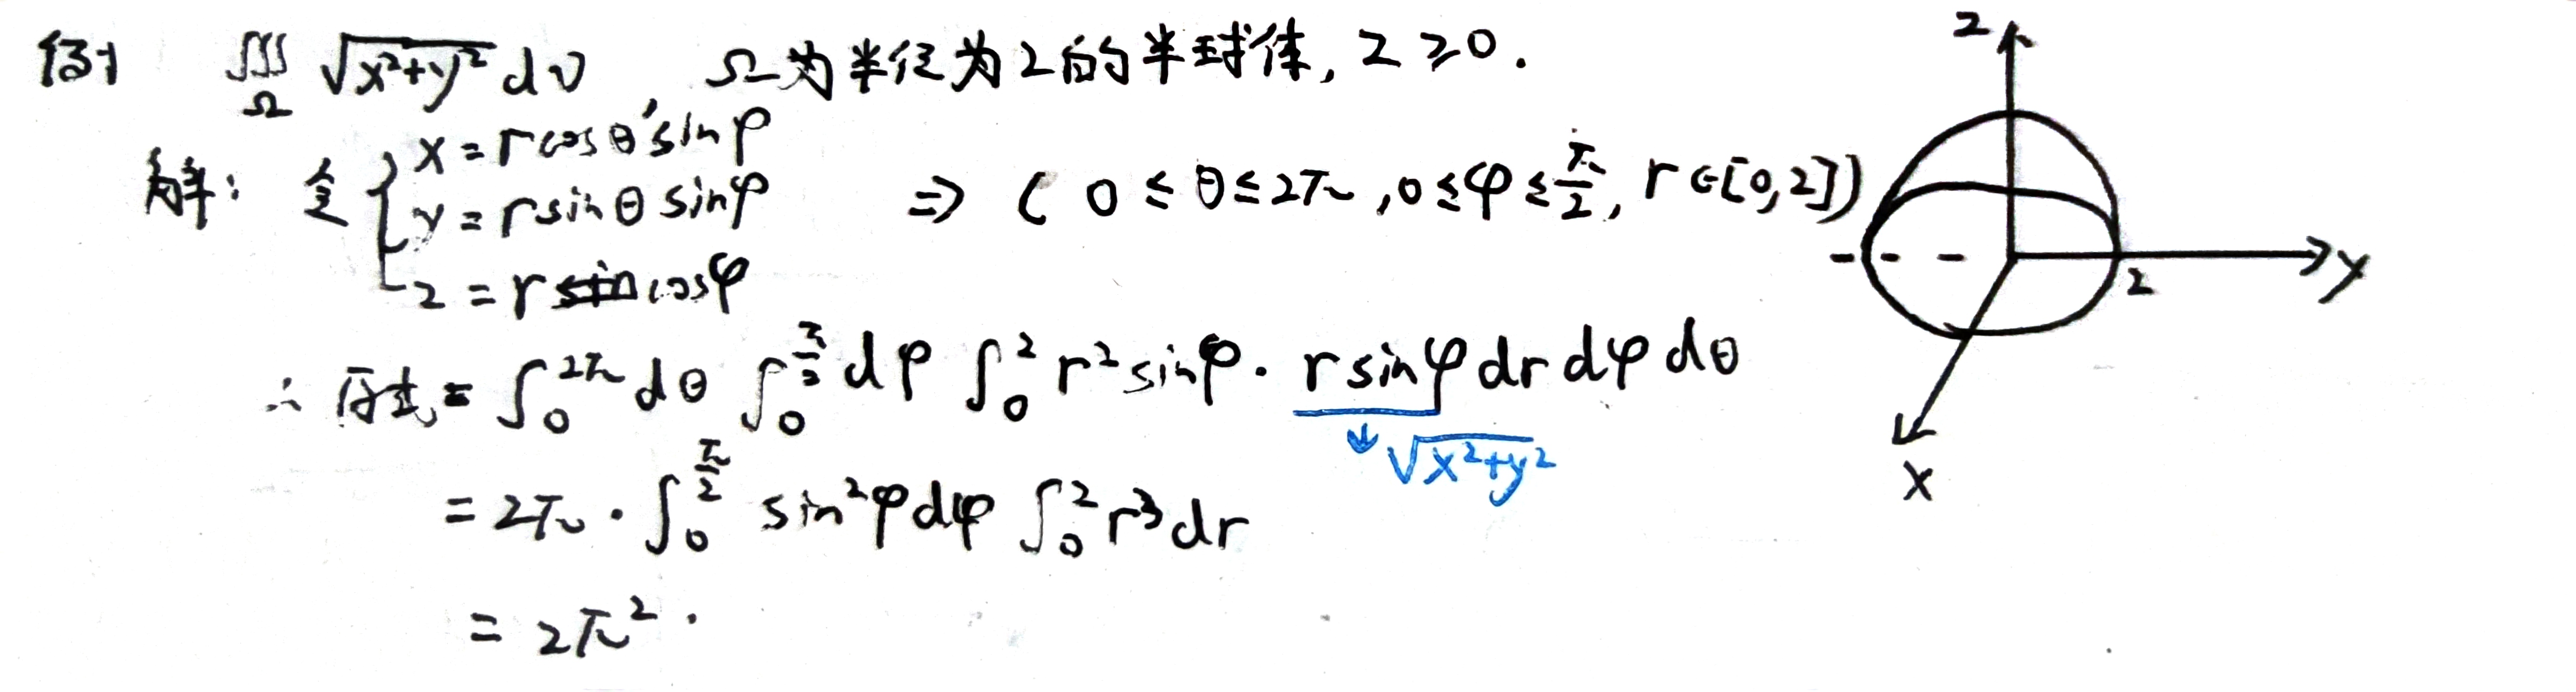 例1 ∭_Ω √(x²+y²) dv, Ω为半径为2的半球体, z≥0.
解: 令 { x = r cosθ sinφ
y = r sinθ sinφ ⇒ ( 0≤θ≤2π, 0≤φ≤π/2, r∈[0,2])
z = r cosφ
∴ 原式 = ∫₀^{2π} dθ ∫₀^{π/2} dφ ∫₀² r² sinφ · r sinφ dr dφ dθ
↓ √(x²+y²)
= 2π · ∫₀^{π/2} sin²φ dφ ∫₀² r³ dr
= 2π².
z
y
2
x